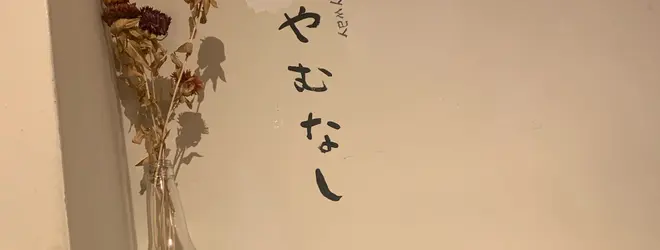 やむなし